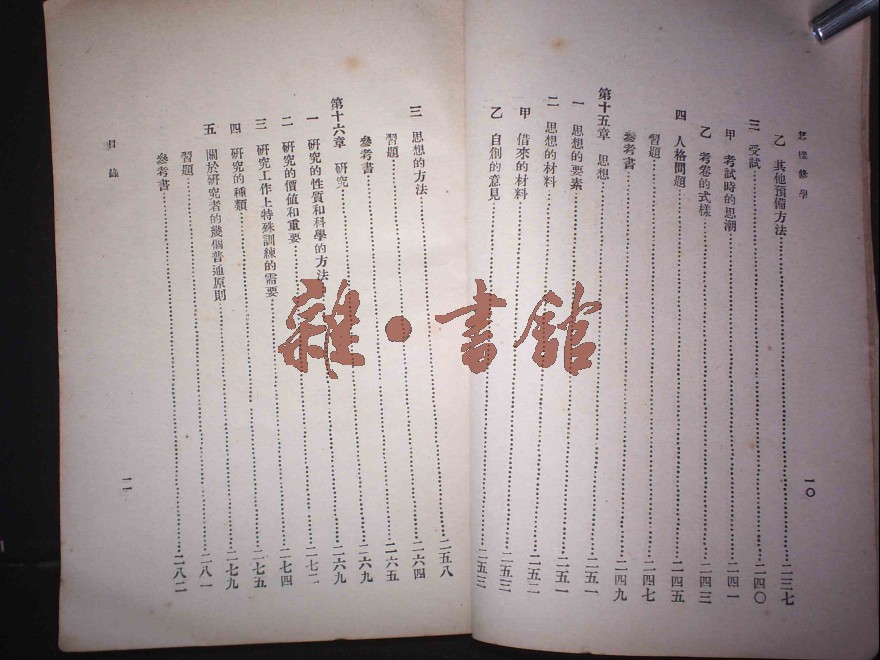 怎樣修學
一〇
乙 其他預備方法 二三七
三 受試 二四〇
甲 考試時的思潮 二四一
乙 考卷的式樣 二四三
四 人格問題 二四五
習題 二四七
參考書 二四九
第十五章 思想 二五一
一 思想的要素 二五一
二 思想的材料 二五二
甲 借來的材料 二五三
乙 自創的意見 二五三
三 思想的方法 二五八
習題 二六四
參考書 二六五
第十六章 研究 二六九
一 研究的性質和科學的方法 二六九
二 研究的價値和重要 二七二
三 研究工作上特殊訓練的需要 二七四
四 研究的種類 二七五
五 關於研究者的幾個普通原則 二七九
習題 二八一
參考書 二八二
目錄
一一
雜·書館